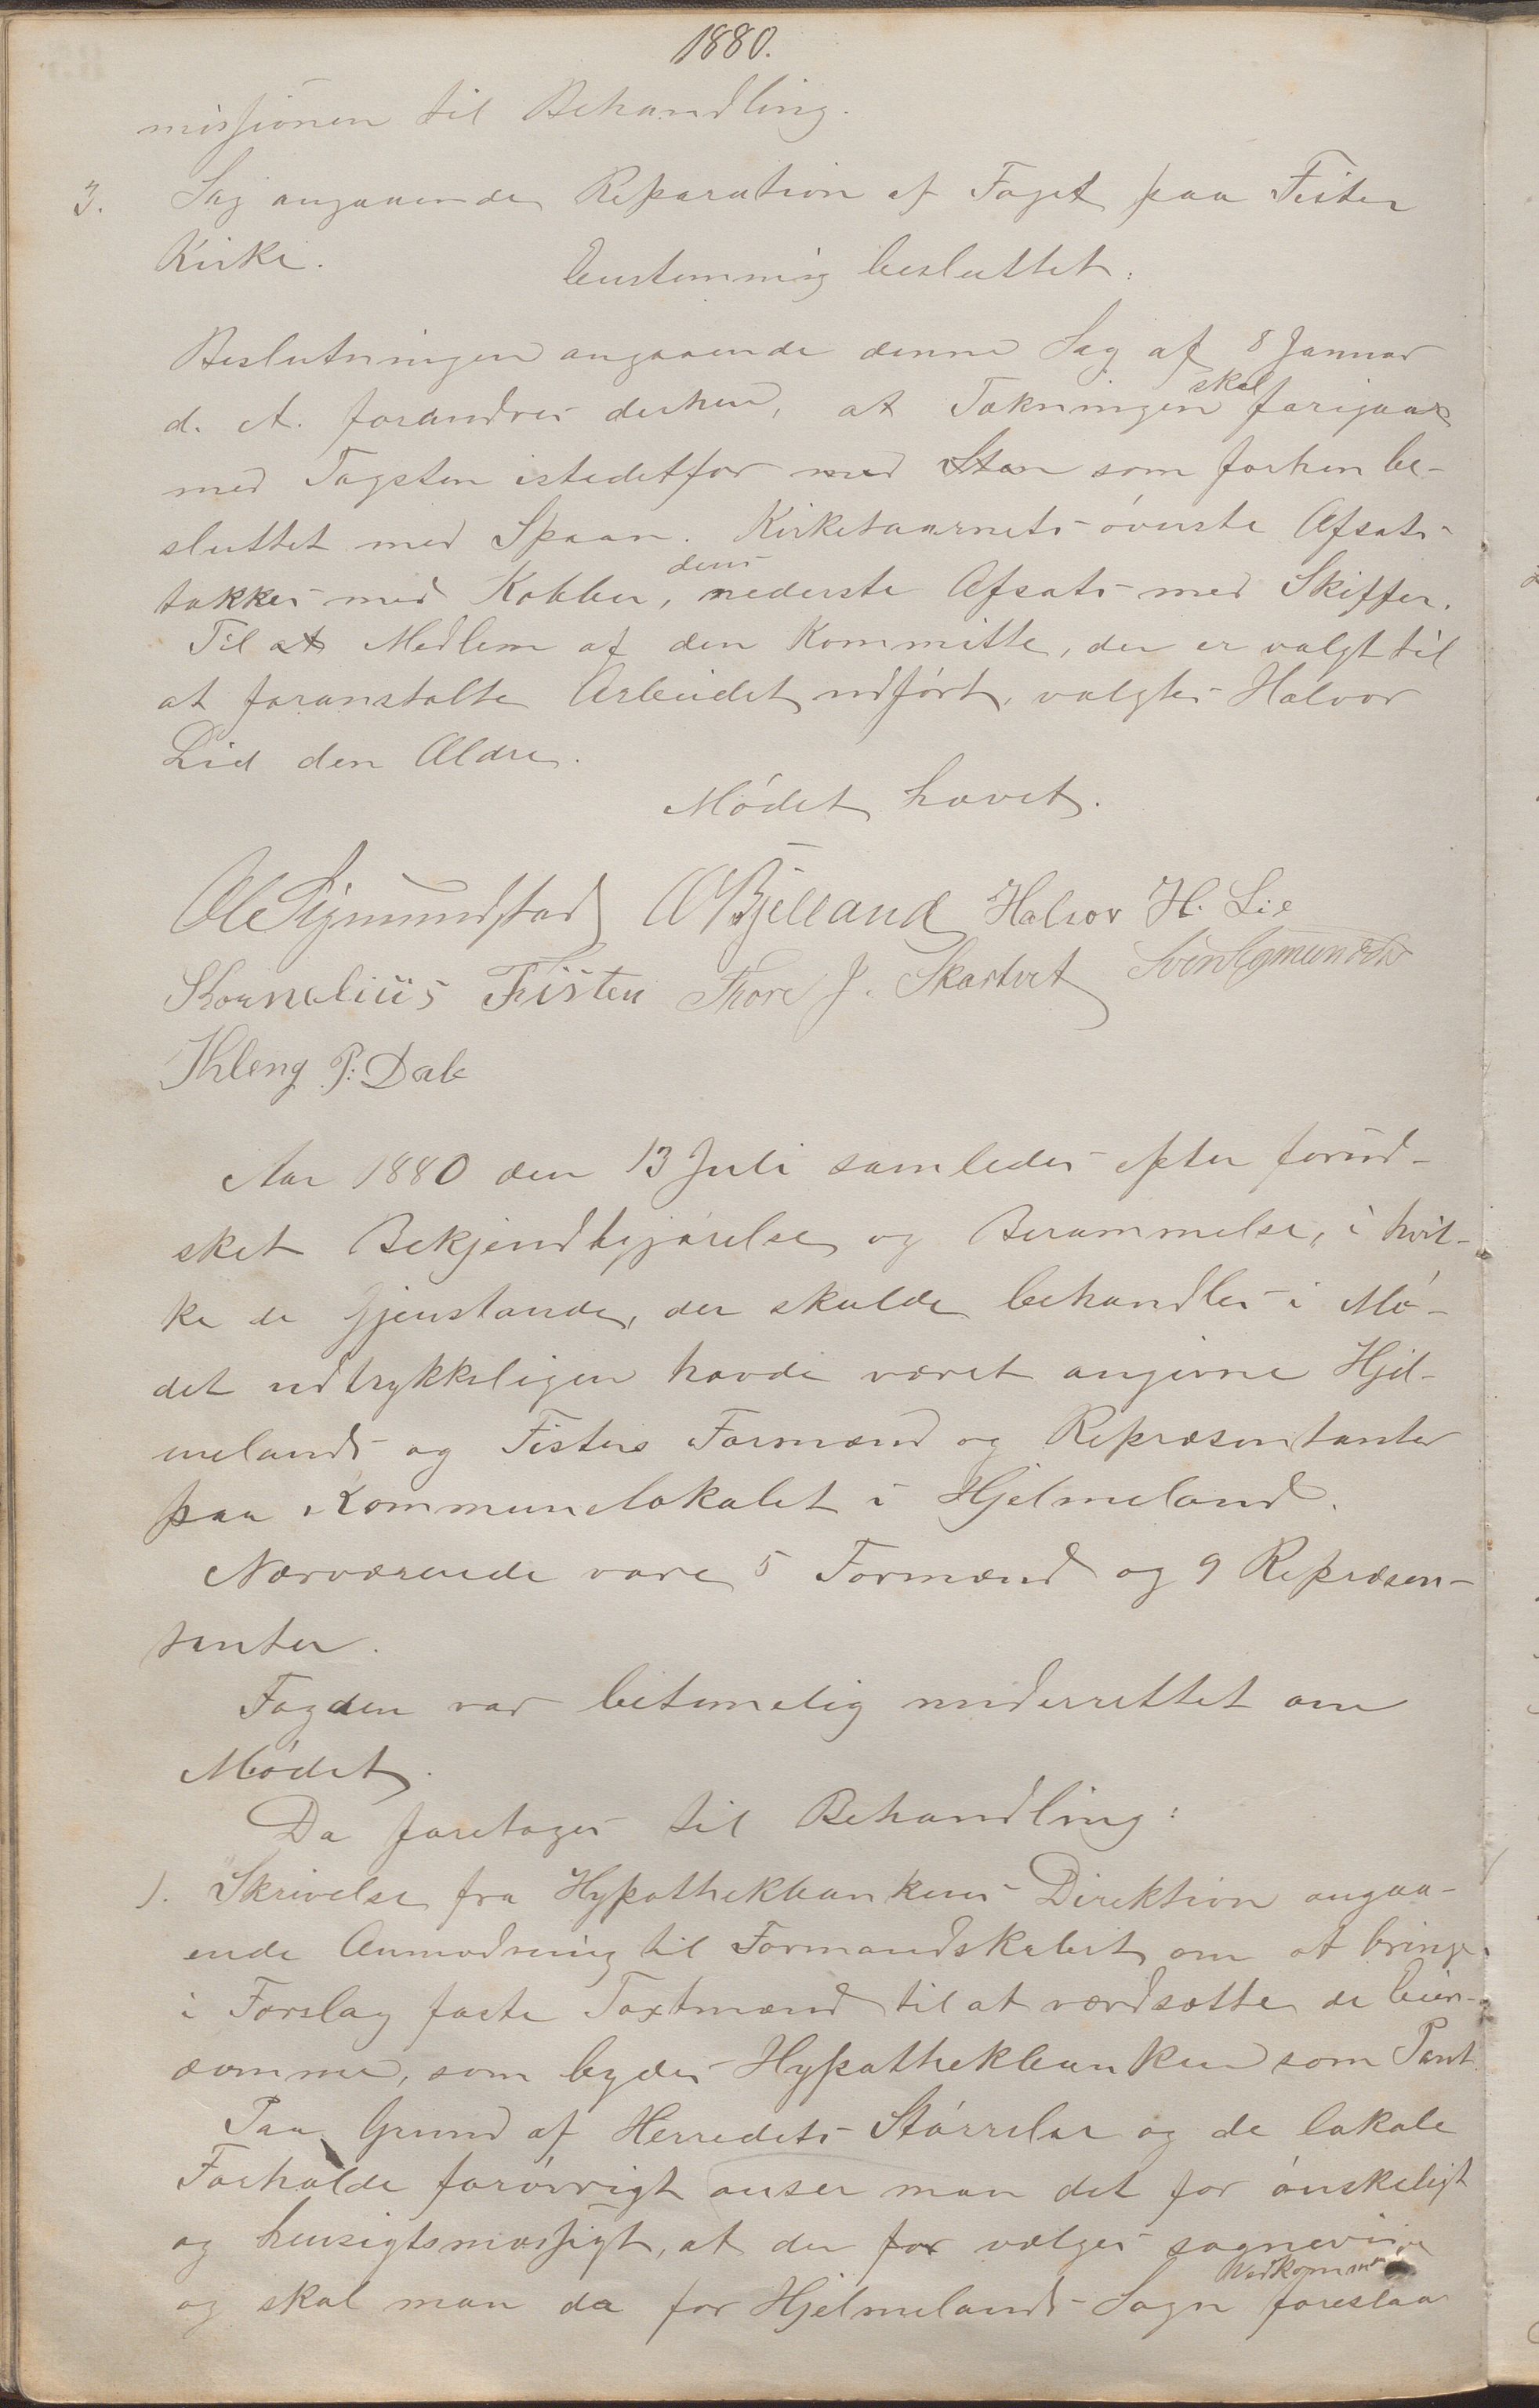 1880.
missionen til Behandling.
3. Sag angaaende Reparation af Taget paa Fister
Kirke. Eenstemmig besluttet:
Beslutningen angaaende denne Sag af 8 Januar
d. A. forandres derhen, at Tækningen skal foregaa
med Tagsten istedetfor med Sten som forhen be-
sluttet med Spaan. Kirketaarnets øverste Afsats
tækkes med Kobber, dens nederste Afsats med Skiffer.
Til at Medlem af den Kommitte, der er valgt til
at foranstalte Arbeidet udført, valgtes Halvor
Lid den Ældre.
Mødet hævet.
Ole Sigmundstad O Bjelland Halvor H. Lie
Kornelius Fister Thore J. Skartvet Svein Sigmundstad
Thleng P: Dale
Aar 1880 den 13 Juli samledes efter forud-
sket Bekjendtgjørelse og Berammelse, i hvil-
ke de Gjenstande, der skulde behandles i Mø-
det udtrykkeligen havde været angivne Hjel-
melands og Fisters Formænd og Repræsentanter
paa Kommunelokalet i Hjelmeland.
Nærværende vare 5 Formænd og 9 Repræsen-
tanter.
Fogden var betimelig underrettet om
Mødet.
Da foretoges til Behandling:
1. Skrivelse fra Hypothekbankens Direktion angaa-
ende Anmodning til Formandskabet om at bringe
i Forslag faste Taxtmænd til at værdsætte de Eien-
domme, som bydes Hypothekbanken som Pant.
Paa Grund af Herredets Størrelse og de lokale
Forholde forøvrigt anser man det for ønskeligt
og hensigtsmæssigt, at der for vælges sognevise
og skal man da for Hjelmelands Sogn Vedkommende foreslaa